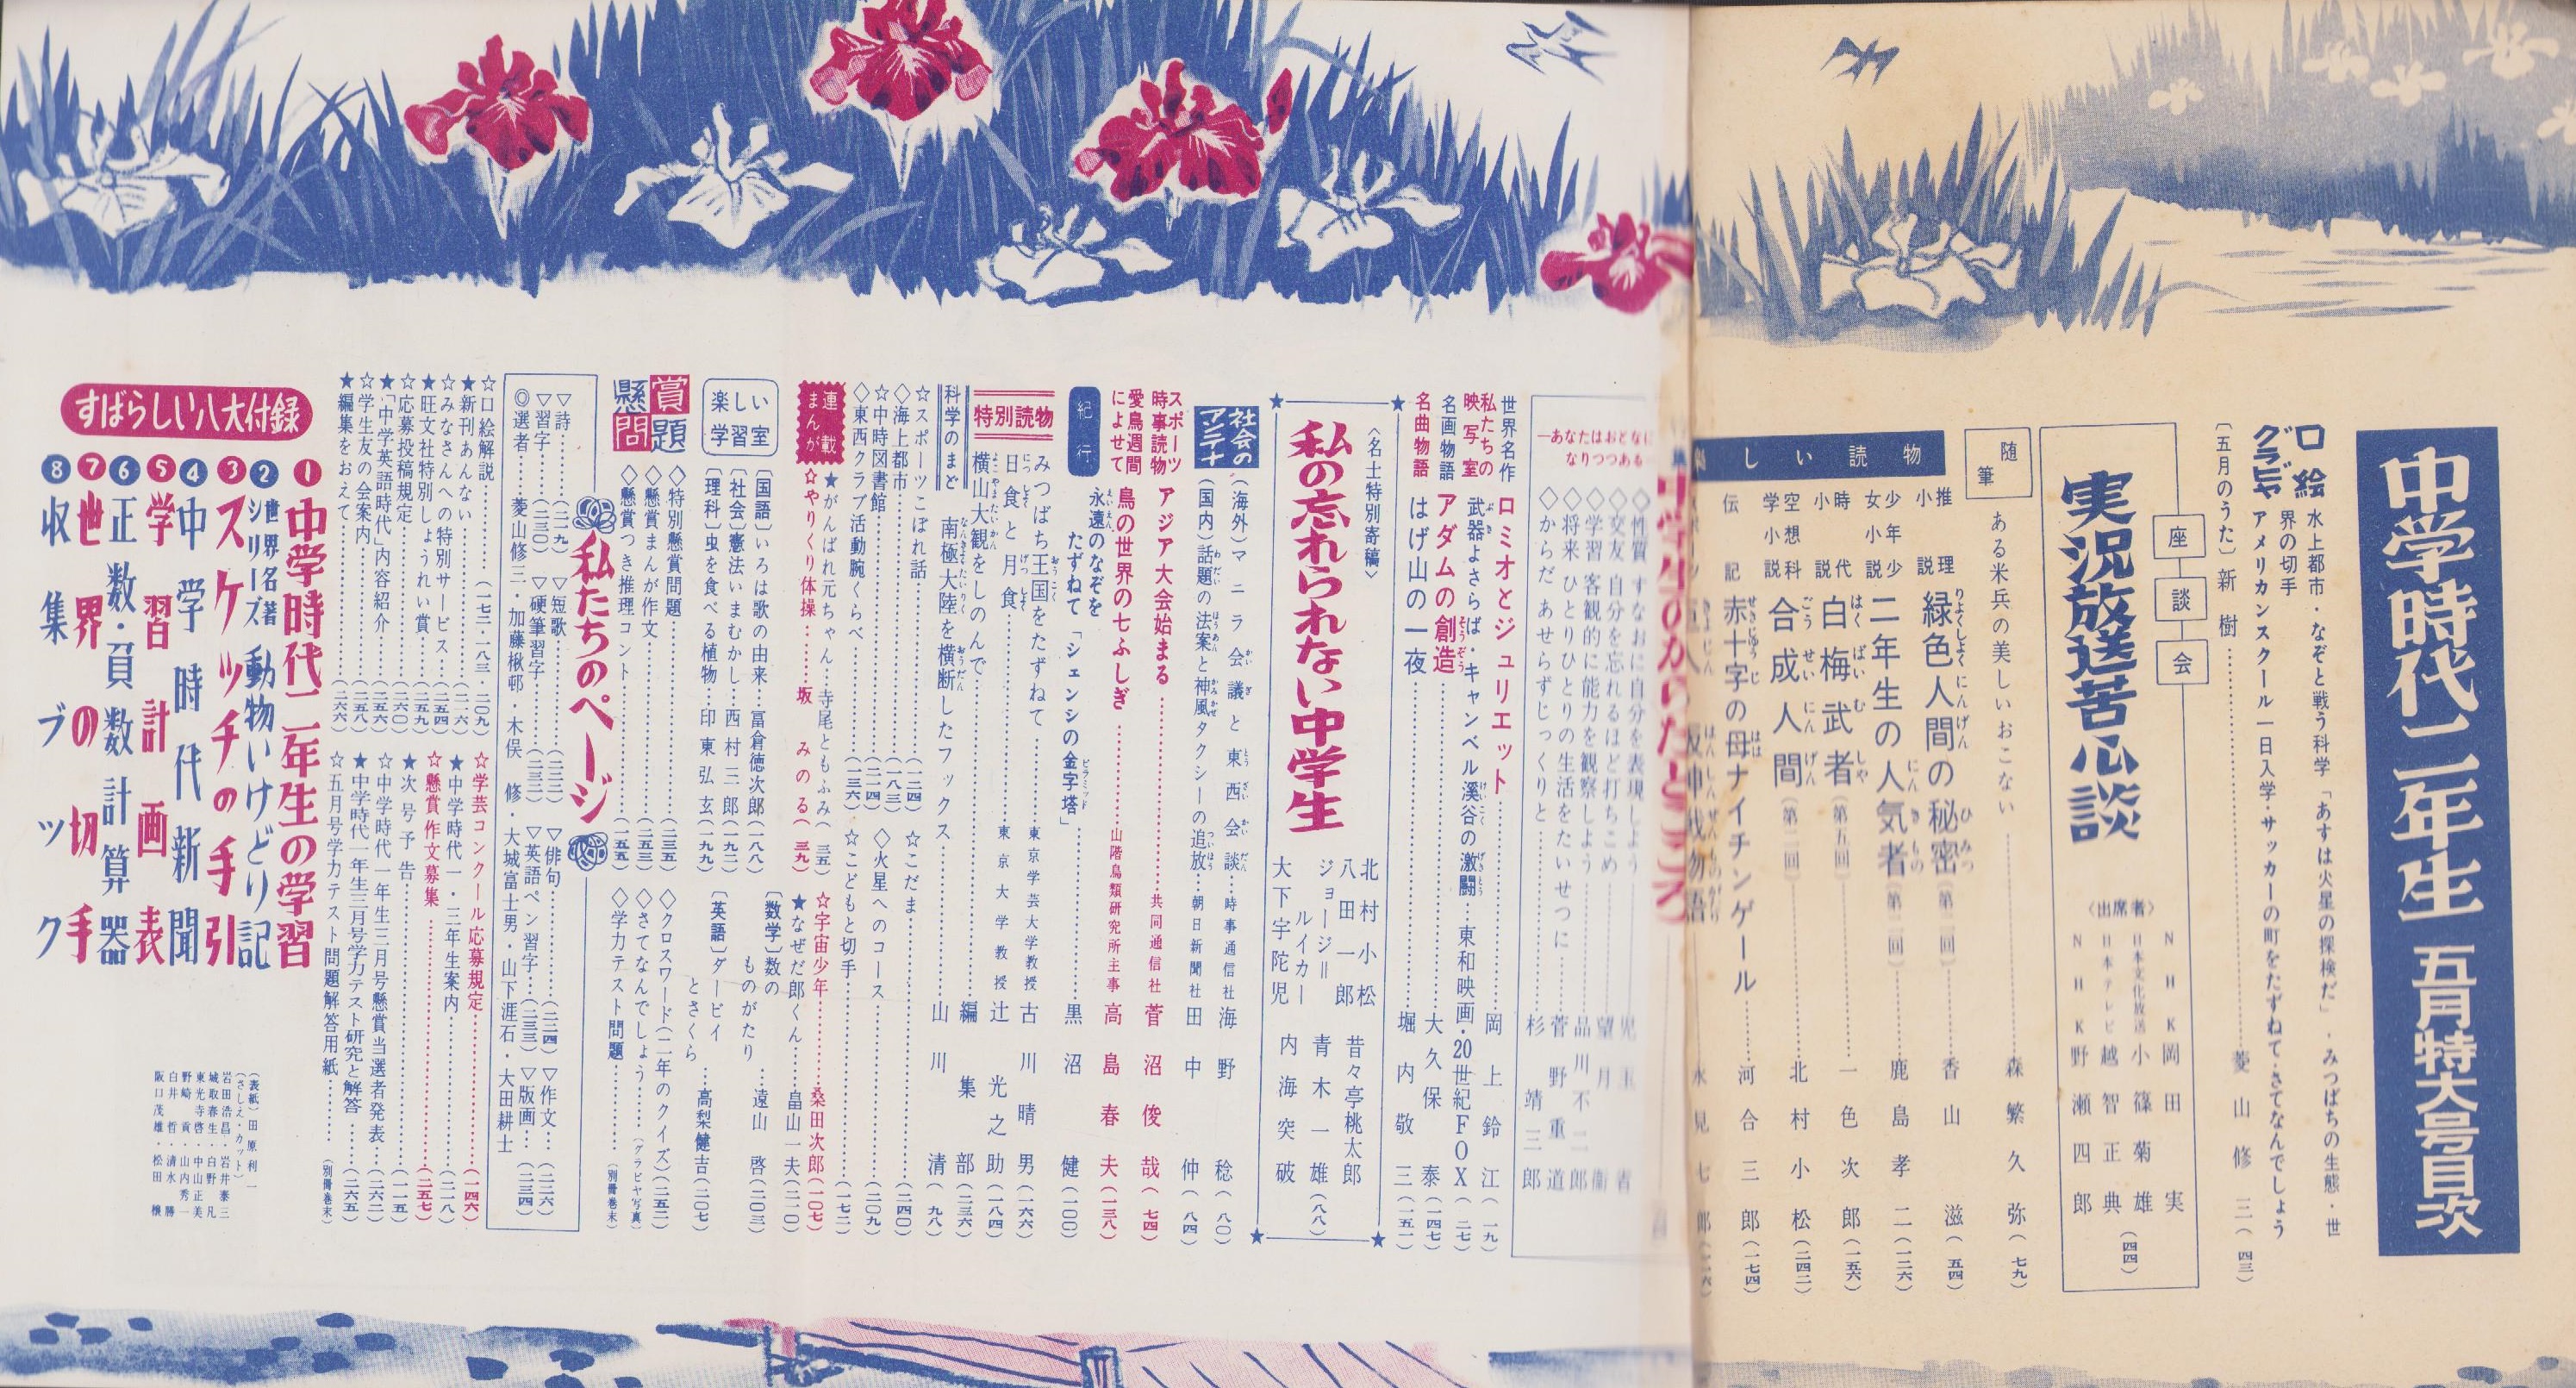 中学時代二年生 五月特大号目次
口絵 水上都市・なぞと戦う科学「あすは火星の探検だ」・みつばちの生態・世
グラビヤ 界の切手 アメリカンスクール一日入学・サッカーの町をたずねて・さてなんでしょう
〔五月のうた〕新樹……菱山修三(四三)
座談会
実況放送苦心談
〈出席者〉
NHK 岡田実
日本文化放送 小篠菊雄
日本テレビ 越智正典
NHK 野瀬四郎
(四四)
随筆 ある米兵の美しいおこない……森繁久弥(七九)
しい読物
推理小説 緑色人間の秘密(第二回)……香山滋(五四)
少年少女小説 二年生の人気者(第二回)……鹿島孝二(一二六)
時代小説 白梅武者(第五回)……一色次郎(一五六)
空想科学小説 合成人間(第二回)……北村小松(二四二)
伝記 赤十字の母ナイチンゲール……河合三郎(一七四)
阪神戦物語……水見七郎
―あなたはおとなに
なりつつある
◇性質 すなおに自分を表現しよう
◇交友 自分を忘れるほど打ちこめ……望月衛
◇学習 客観的に能力を観察しよう……品川不二郎
◇将来 ひとりひとりの生活をたいせつに……菅野重道
◇からだ あせらずじっくりと……杉靖三郎
世界名作 ロミオとジュリエット……岡上鈴江(一九)
私たちの映写室 武器よさらば・キャンベル溪谷の激闘……東和映画・20世紀FOX(二七)
名画物語 アダムの創造……大久保泰(一四七)
名曲物語 はげ山の一夜……堀内敬三(一五一)
〈名士特別寄稿〉
私の忘れられない中学生
北村小松
八田一郎
ジョージ=ルイカー
大下宇陀児
昔々亭桃太郎
青木一雄
内海突破
(八八)
社会のアンテナ
(海外)マニラ会議と東西会談……時事通信社 海野稔(八〇)
(国内)話題の法案と神風タクシーの追放……朝日新聞社 田中仲(八四)
スポーツ時事読物 アジア大会始まる……共同通信社 菅沼俊哉(七四)
愛鳥週間によせて 鳥の世界の七ふしぎ……山階鳥類研究所主事 高島春夫(一三八)
紀行 永遠のなぞをたずねて「シェンシの金字塔」……黒沼健(一〇〇)
特別読物
みつばち王国をたずねて……東京学芸大学教授 古川晴男(一六六)
日食と月食……東京大学教授 辻光之助(一八四)
横山大観をしのんで……編集部(二三六)
科学のまど 南極大陸を横断したフックス……山川清(九八)
☆スポーツこぼれ話……(一二四)
◇海上都市……(一八三)
☆中時図書館……(二一四)
◇東西クラブ活動腕くらべ……(一三六)
☆こだま……(二四〇)
◇火星へのコース……(二〇九)
☆こどもと切手……(一七二)
連載まんが
★がんばれ元ちゃん……寺尾ともふみ(三五)
☆やりくり体操……坂みのる(三九)
☆宇宙少年……桑田次郎(一〇七)
★なぜだ郎くん……畠山一夫(二一〇)
楽しい学習室
〔国語〕いろは歌の由来……富倉徳次郎(一八八)
〔社会〕憲法いまむかし……西村三郎(一九二)
〔理科〕虫を食べる植物……印東弘玄(一九九)
〔数学〕数のものがたり……遠山啓(二〇三)
〔英語〕ダービイとさくら……高梨健吉(二〇七)
懸賞問題
◇特別懸賞問題……(二三五)
◇懸賞まんが作文……(二五三)
◇懸賞つき推理コント……(一五五)
◇クロスワード(二年のクイズ)(二五二)
◇さてなんでしょう……(グラビヤ写真)
◇学力テスト問題……(別冊巻末)
私たちのページ
▽詩……(二二九)▽短歌……(二三二)▽俳句……(二二四)▽作文……(二二六)
▽習字……(二三〇)▽硬筆習字……(二三三)▽英語ペン習字……(二三三)▽版画……(二三四)
◎選者……菱山修三・加藤楸邨・木俣修・大城富士男・山下涯石・大田耕士
☆口絵解説……(一七三・一八三・二〇九)
★新刊あんない……(二一六)
☆みなさんへの特別サービス……(二五四)
★旺文社特別しょうれい賞……(二五九)
☆応募投稿規定……(二六〇)
★「中学英語時代」内容紹介……(二五六)
☆学生友の会案内……(二五八)
★編集をおえて……(二六六)
☆学芸コンクール応募規定……(一四六)
★中学時代一・三年生案内……(二一八)
☆懸賞作文募集……(二五七)
★次号予告……(一一五)
☆中学時代一年生三月号懸賞当選者発表……(二六二)
★中学時代一年生三月号学力テスト研究と解答……(二六五)
☆五月号学力テスト問題解答用紙……(別冊巻末)
すばらしい八大付録
1 中学時代二年生の学習
2 世界名著シリーズ 動物いけどり記
3 スケッチの手引
4 中学時代新聞
5 学習計画表
6 正数・負数計算器
7 世界の切手
8 収集ブック
(表紙)田原利一
(さしえ・カット)
岩田浩昌・岩井泰三
城取春生・白野凡
東光寺啓・中山正美
野崎貢・山内秀一
白井哲・清水勝
阪口茂雄・松田穣